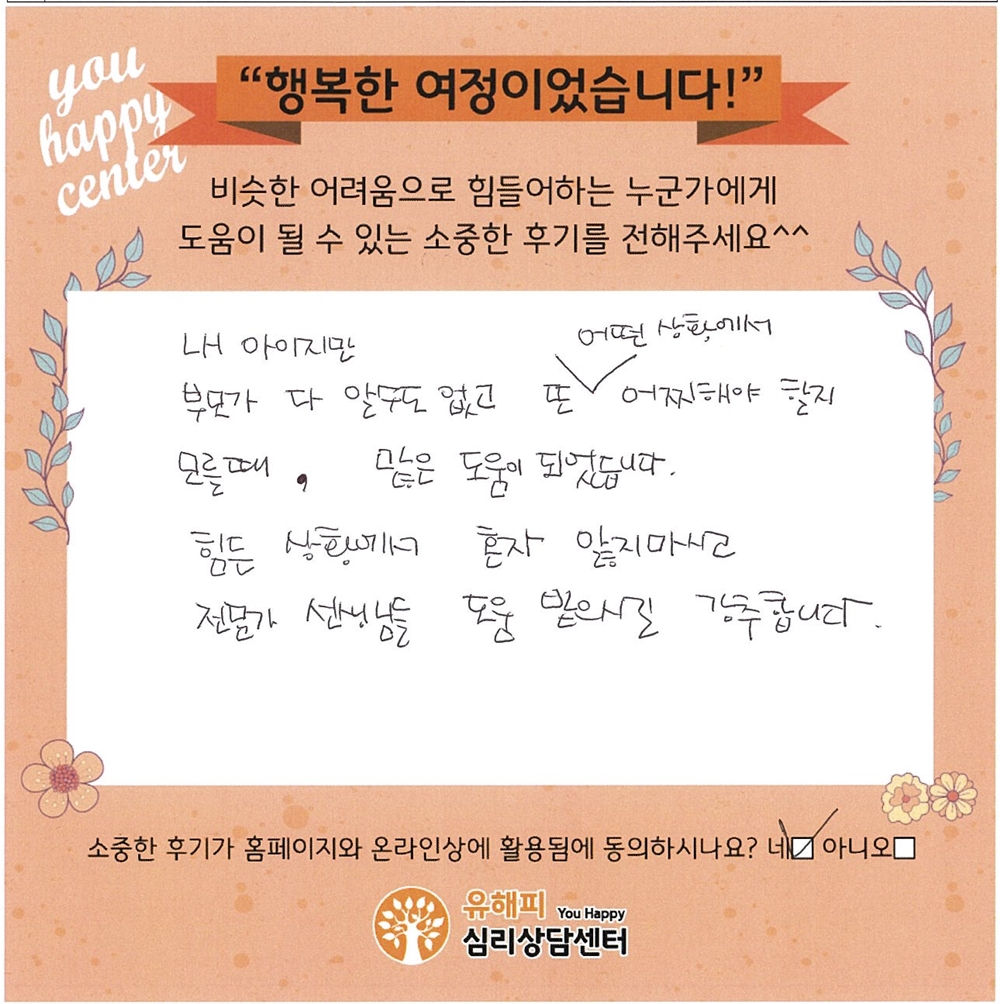 you
happy
center
“행복한 여정이었습니다!”
비슷한 어려움으로 힘들어하는 누군가에게
도움이 될 수 있는 소중한 후기를 전해주세요^^
내 아이지만
어떤 상황에서
부모가 다 알수도 없고 또 ∨ 어찌해야 할지
모를때, 많은 도움이 되었습니다.
힘든 상황에서 혼자 앓지마시고
전문가 선생님들 도움 받으시길 강추합니다.
소중한 후기가 홈페이지와 온라인상에 활용됨에 동의하시나요? 네☑ 아니오☐
유해피 You Happy
심리상담센터